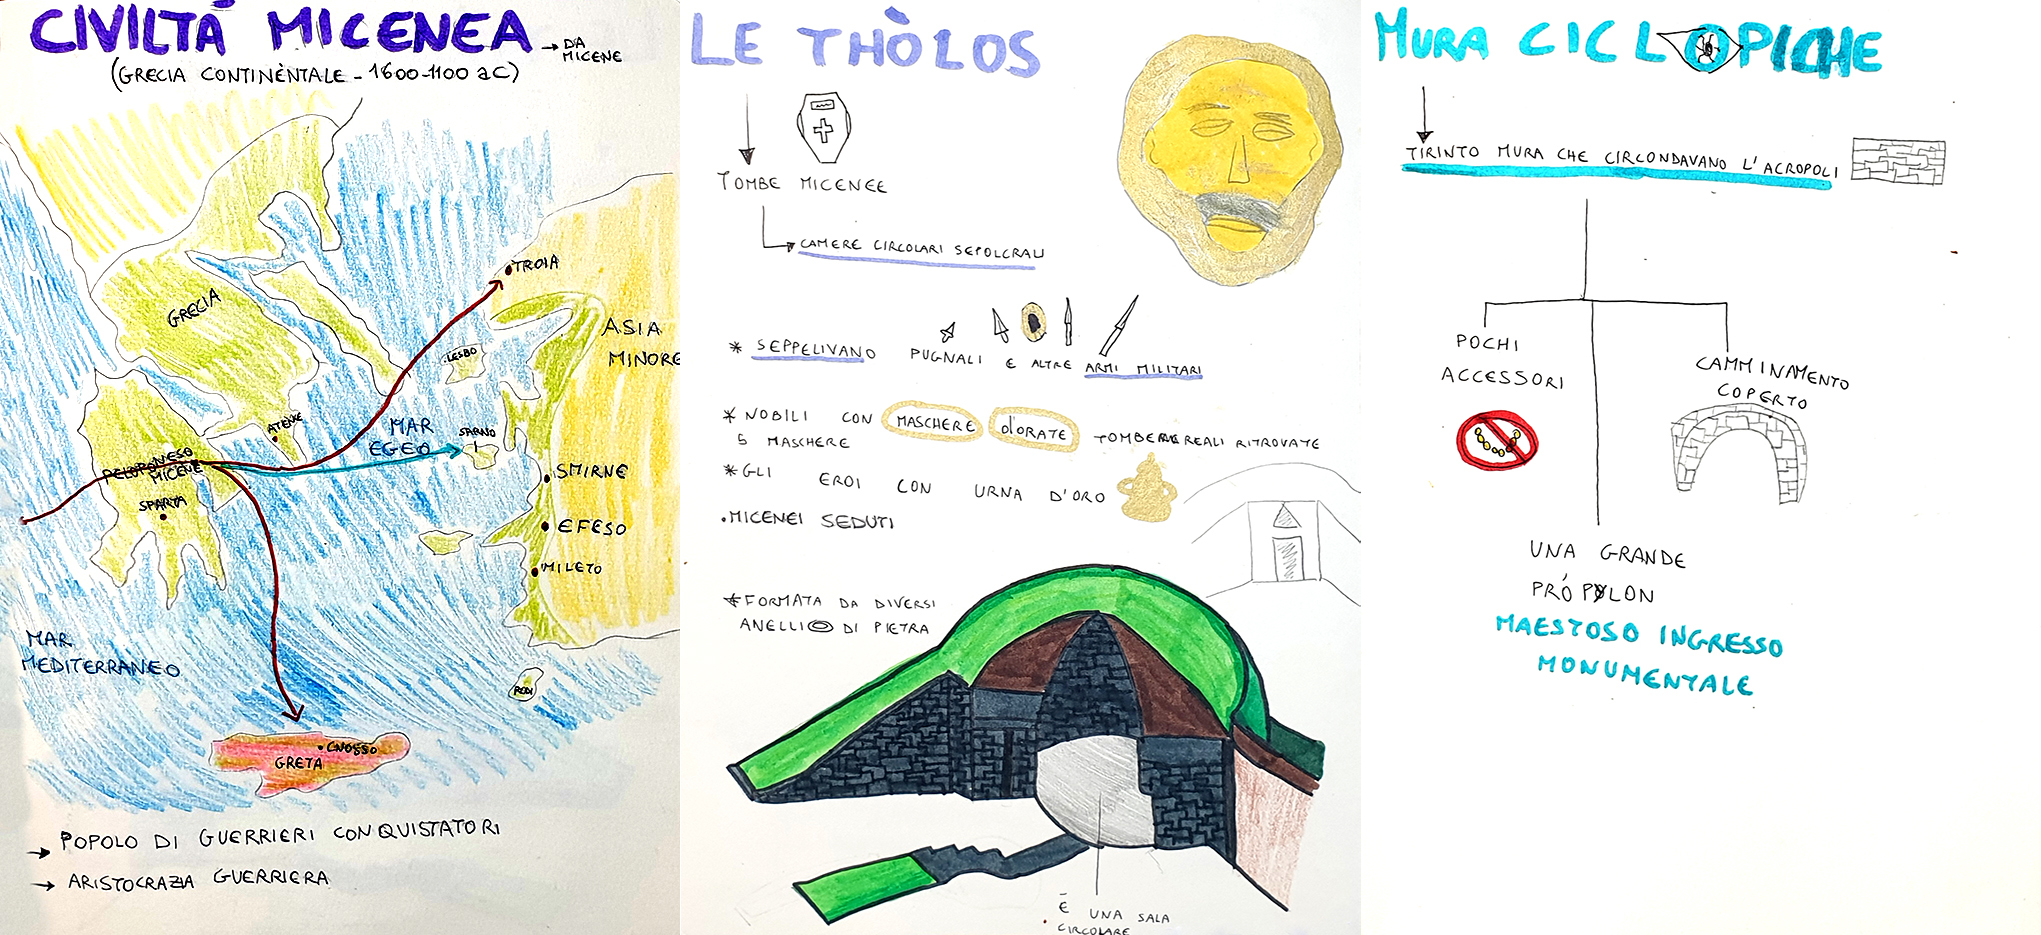 CIVILTÀ MICENEA → DA
MICENE
(GRECIA CONTINÈNTALE - 1600-1100 aC)
TROIA
GRECIA
ASIA
MINORE
LESBO
ATENE
MAR
EGEO
SAMO
PELOPONESO
MICENE
SMIRNE
SPARTA
EFESO
MILETO
MAR
MEDITERRANEO
RODI
CNOSSO
CRETA
→ POPOLO DI GUERRIERI CONQUISTATORI
→ ARISTOCRAZIA GUERRIERA
LE THÒLOS
TOMBE MICENEE
CAMERE CIRCOLARI SEPOLCRALI
* SEPPELIVANO PUGNALI E ALTRE ARMI MILITARI
* NOBILI CON MASCHERE d'ORATE
5 MASCHERE TOMBE REALI RITROVATE
* GLI EROI CON URNA D'ORO
• MICENEI SEDUTI
* FORMATA DA DIVERSI
ANELLI DI PIETRA
È UNA SALA
CIRCOLARE
MURA CICLOPICHE
TIRINTO MURA CHE CIRCONDAVANO L'ACROPOLI
POCHI
ACCESSORI
CAMMINAMENTO
COPERTO
UNA GRANDE
PRÓPYLON
MAESTOSO INGRESSO
MONUMENTALE